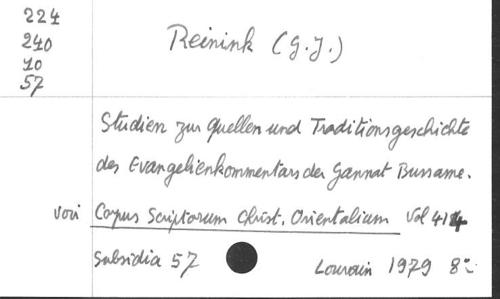 224
240
10
57
Reinink (G.J.)
Studien zur Quellen und Traditionsgeschichte
des Evangelienkommentars der Gannat Bussame.
voir Corpus Scriptorum Christ. Orientalium Vol 414
Subsidia 57 Louvain 1979 8°